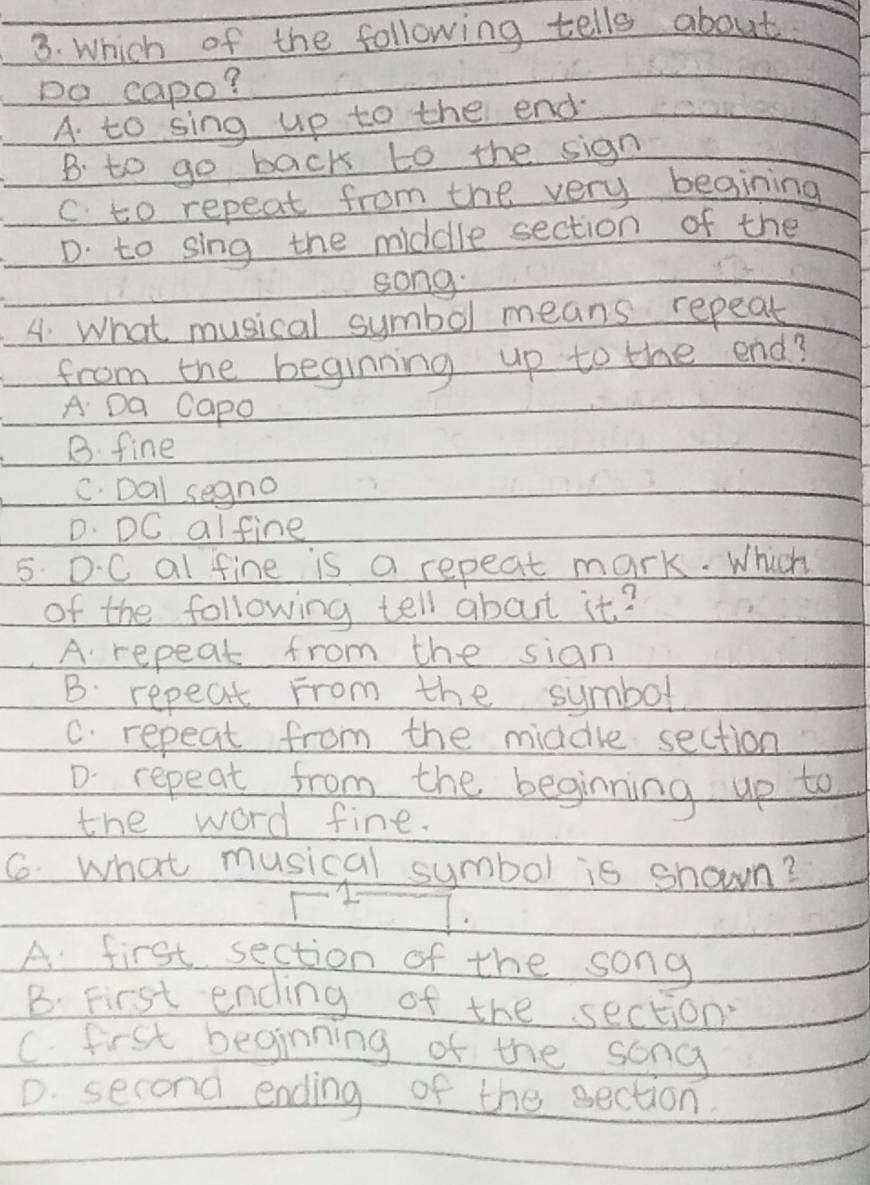 3. Which of the following tells about
Da capo?
A. to sing up to the end.
B. to go back to the sign
C. to repeat from the very begining
D. to sing the middle section of the
song.
4. What musical symbol means repeat
from the beginning up to the end?
A. Da Capo
B. fine
C. Dal segno
D. DC al fine
5. D.C al fine is a repeat mark. Which
of the following tell abart it?
A. repeat from the sign
B. repeat From the symbol
C. repeat from the middle section
D. repeat from the beginning up to
the word fine.
6. What musical symbol is shown?
1
A. first section of the song
B. First ending of the section.
C. first beginning of the song
D. second ending of the section.